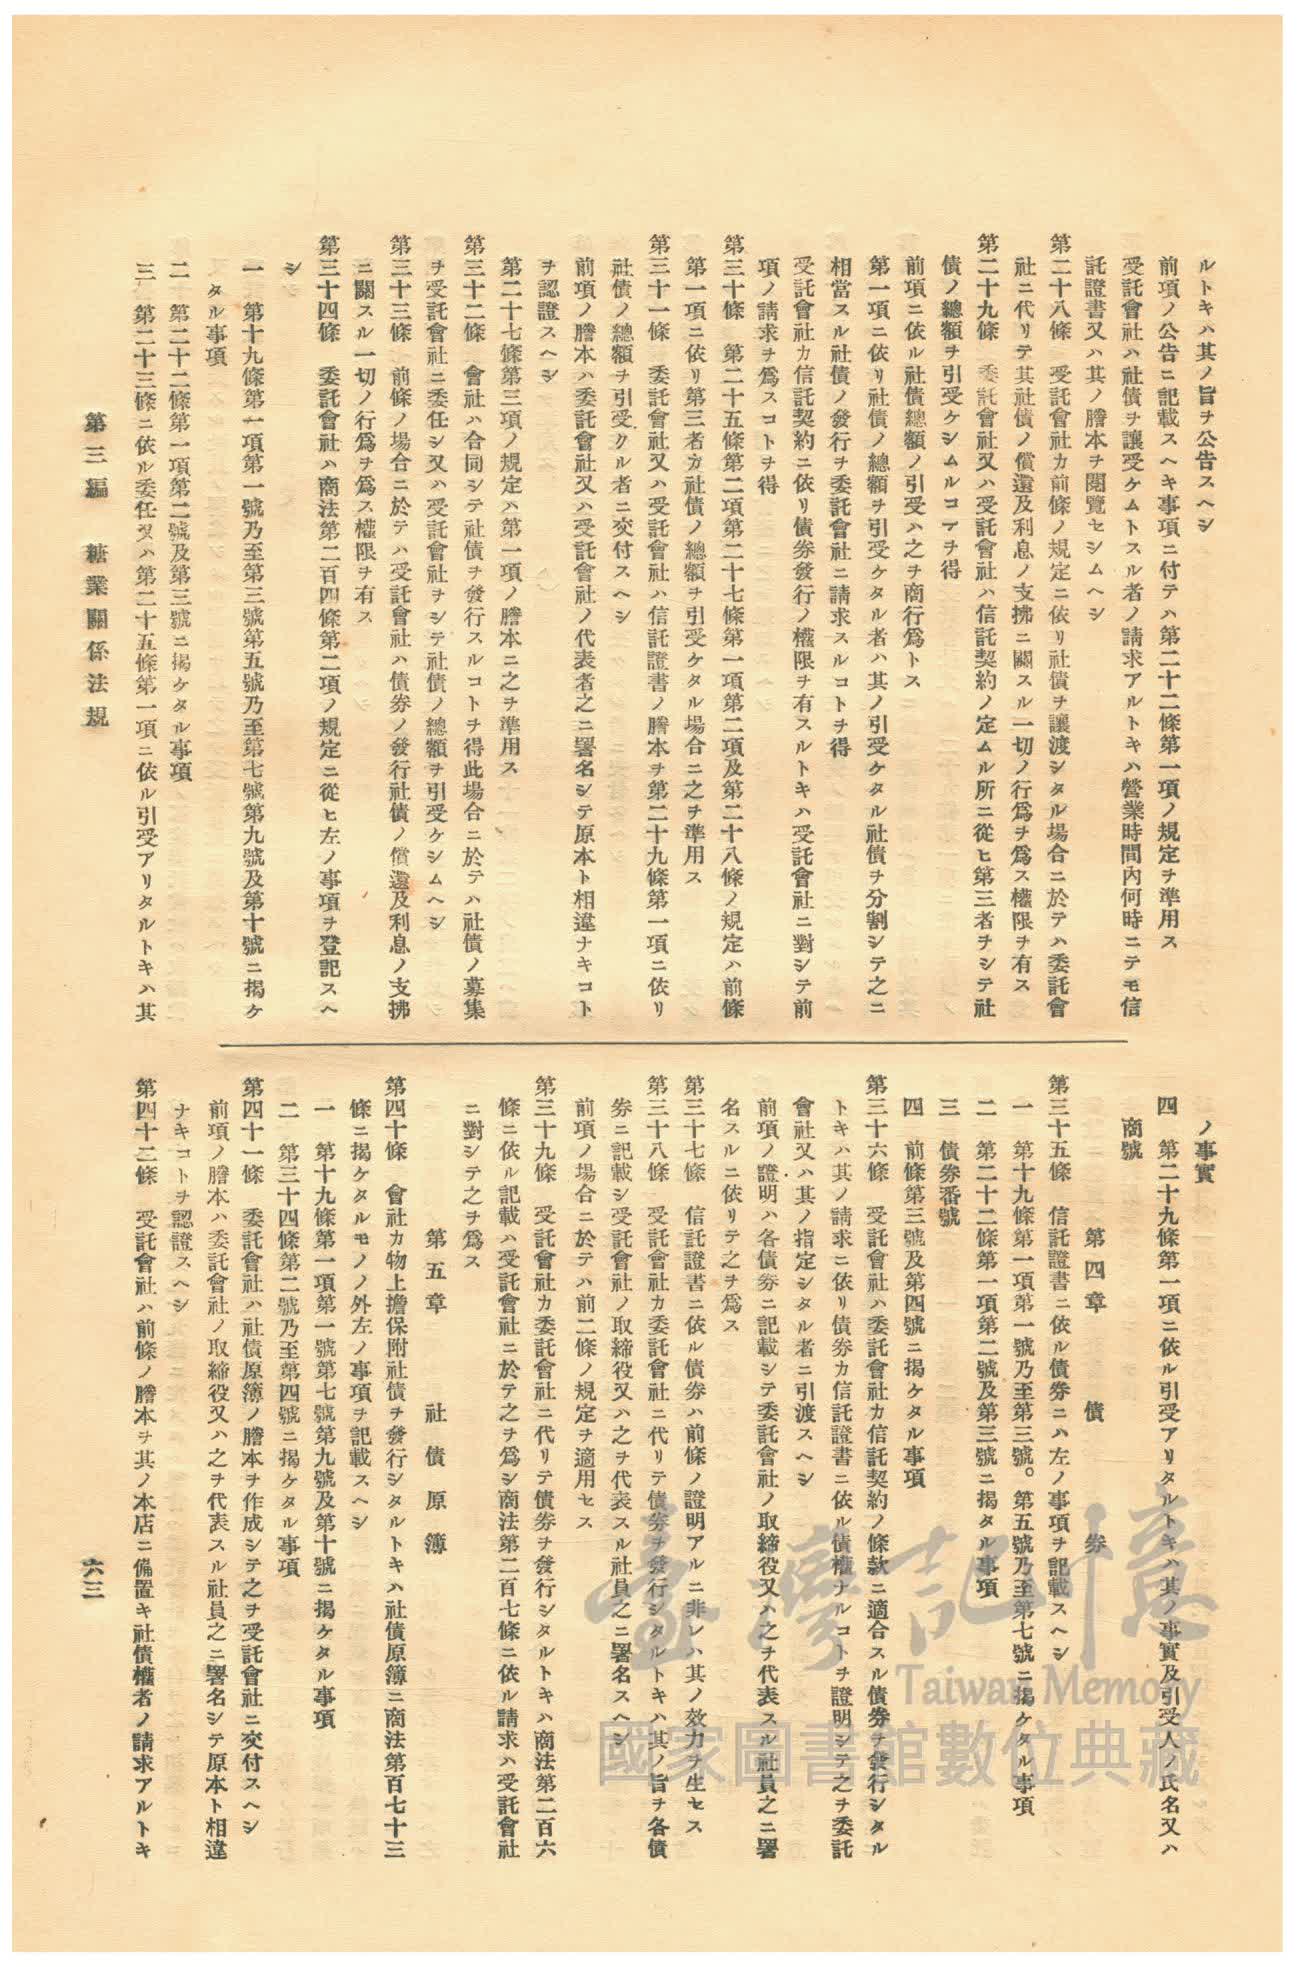 ルトキハ其ノ旨ヲ公告スヘシ
前項ノ公告ニ記載スヘキ事項ニ付テハ第二十二條第一項ノ規定ヲ準用ス
受託會社ハ社債ヲ讓受ケムトスル者ノ請求アルトキハ營業時間內何時ニテモ信
託證書又ハ其ノ謄本ヲ閱覽セシムヘシ
第二十八條　受託會社カ前條ノ規定ニ依リ社債ヲ讓渡シタル場合ニ於テハ委託會
社ニ代リテ其社債ノ償還及利息ノ支拂ニ關スル一切ノ行爲ヲ爲ス權限ヲ有ス
第二十九條　委託會社又ハ受託會社ハ信託契約ノ定ムル所ニ從ヒ第三者ヲシテ社
債ノ總額ヲ引受ケシムルコトヲ得
前項ニ依ル社債總額ノ引受ハ之ヲ商行爲トス
第一項ニ依リ社債ノ總額ヲ引受ケタル者ハ其ノ引受ケタル社債ヲ分割シテ之ニ
相當スル社債ノ發行ヲ委託會社ニ請求スルコトヲ得
受託會社カ信託契約ニ依リ債券發行ノ權限ヲ有スルトキハ受託會社ニ對シテ前
項ノ請求ヲ爲スコトヲ得
第三十條　第二十五條第二項第二十七條第一項第二項及第二十八條ノ規定ハ前條
第一項ニ依リ第三者カ社債ノ總額ヲ引受ケタル場合ニ之ヲ準用ス
第三十一條　委託會社又ハ受託會社ハ信託證書ノ謄本ヲ第二十九條第一項ニ依リ
社債ノ總額ヲ引受クル者ニ交付スヘシ
前項ノ謄本ハ委託會社又ハ受託會社ノ代表者之ニ署名シテ原本ト相違ナキコト
ヲ認證スヘシ
第二十七條第三項ノ規定ハ第一項ノ謄本ニ之ヲ準用ス
第三十二條　會社ハ合同シテ社債ヲ發行スルコトヲ得此場合ニ於テハ社債ノ募集
ヲ受託會社ニ委任シ又ハ受託會社ヲシテ社債ノ總額ヲ引受ケシムヘシ
第三十三條　前條ノ場合ニ於テハ受託會社ハ債券ノ發行社債ノ償還及利息ノ支拂
ニ關スル一切ノ行爲ヲ爲ス權限ヲ有ス
第三十四條　委託會社ハ商法第二百四條第二項ノ規定ニ從ヒ左ノ事項ヲ登記スヘ
シ
一　第十九條第一項第一號乃至第三號第五號乃至第七號第九號及第十號ニ揭ケ
タル事項
二　第二十二條第一項第二號及第三號ニ揭ケタル事項
三　第二十三條ニ依ル委任又ハ第二十五條第一項ニ依ル引受アリタルトキハ其
ノ事實
四　第二十九條第一項ニ依ル引受アリタルトキハ其ノ事實及引受人ノ氏名又ハ
商號
第四章　債券
第三十五條　信託證書ニ依ル債券ニハ左ノ事項ヲ記載スヘシ
一　第十九條第一項第一號乃至第三號。第五號乃至第七號ニ揭ケタル事項
二　第二十二條第一項第二號及第三號ニ揭タル事項
三　債券番號
四　前條第三號及第四號ニ揭ケタル事項
第三十六條　受託會社ハ委託會社カ信託契約ノ條款ニ適合スル債券ヲ發行シタル
トキハ其ノ請求ニ依リ債券カ信託證書ニ依ル債權ナルコトヲ證明シテ之ヲ委託
會社又ハ其ノ指定シタル者ニ引渡スヘシ
前項ノ證明ハ各債券ニ記載シテ委託會社ノ取締役又ハ之ヲ代表スル社員之ニ署
名スルニ依リテ之ヲ爲ス
第三十七條　信託證書ニ依ル債券ハ前條ノ證明アルニ非レハ其ノ效力ヲ生セス
第三十八條　受託會社カ委託會社ニ代リテ債券ヲ發行シタルトキハ其ノ旨ヲ各債
券ニ記載シ受託會社ノ取締役又ハ之ヲ代表スル社員之ニ署名スヘシ
前項ノ場合ニ於テハ前二條ノ規定ヲ適用セス
第三十九條　受託會社カ委託會社ニ代リテ債券ヲ發行シタルトキハ商法第二百六
條ニ依ル記載ハ受託會社ニ於テ之ヲ爲シ商法第二百七條ニ依ル請求ハ受託會社
ニ對シテ之ヲ爲ス
第五章　社債原簿
第四十條　會社カ物上擔保附社債ヲ發行シタルトキハ社債原簿ニ商法第百七十三
條ニ揭ケタルモノノ外左ノ事項ヲ記載スヘシ
一　第十九條第一項第一號第七號第九號及第十號ニ揭ケタル事項
二　第三十四條第二號乃至第四號ニ揭ケタル事項
第四十一條　委託會社ハ社債原簿ノ謄本ヲ作成シテ之ヲ受託會社ニ交付スヘシ
前項ノ謄本ハ委託會社ノ取締役又ハ之ヲ代表スル社員之ニ署名シテ原本ト相違
ナキコトヲ認證スヘシ
第四十二條　受託會社ハ前條ノ謄本ヲ其ノ本店ニ備置キ社債權者ノ請求アルトキ
第三編　糖業關係法規
六三
臺灣記憶
Taiwan Memory
國家圖書館數位典藏